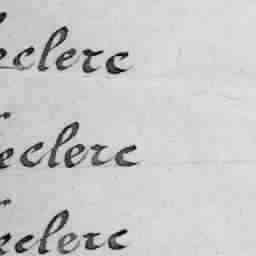 eclerc
eclerc
eclerc